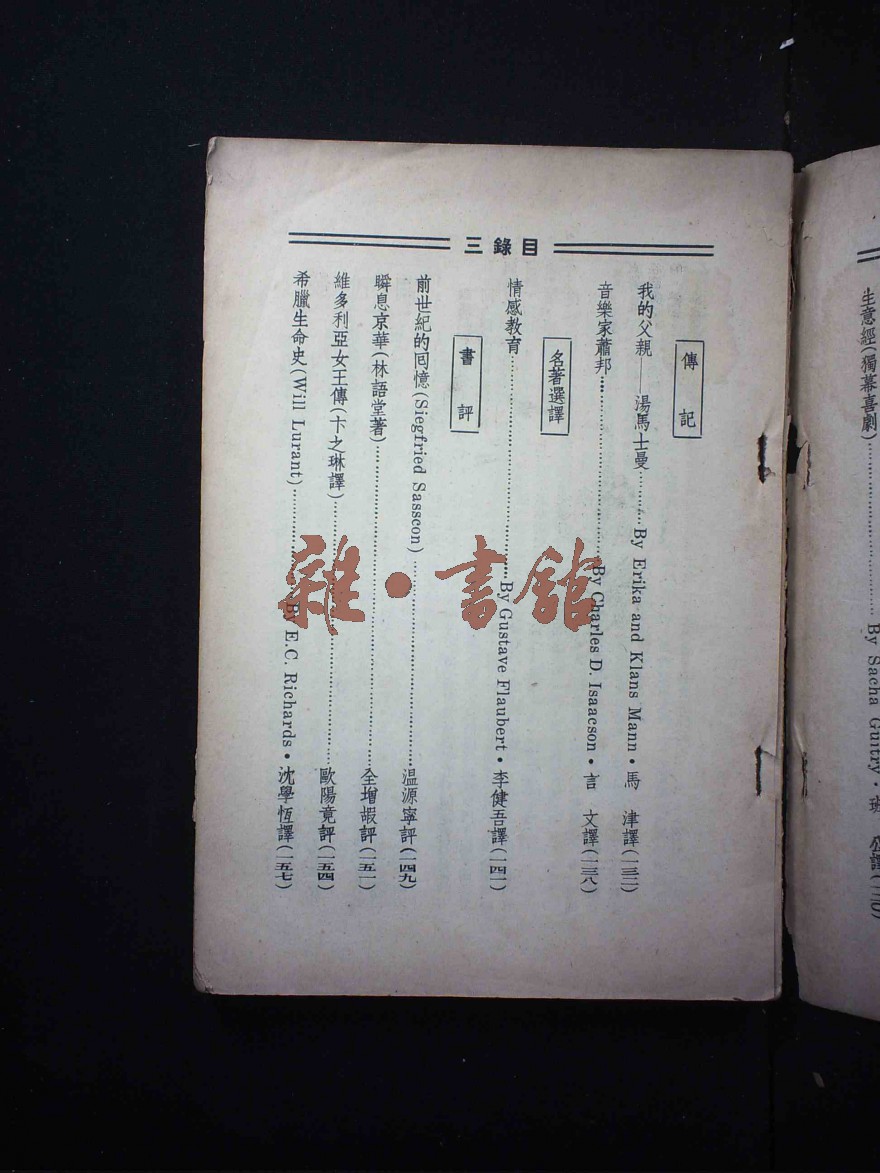 生意經(獨幕喜劇)……By Sacha Guitry·班
目錄三
傳記
我的父親——湯馬士曼……By Erika and Klans Mann·馬 津譯(一三二)
音樂家蕭邦……By Charles D. Isaacson·言 文譯(一三八)
名著選譯
情感教育……By Gustave Flaubert·李健吾譯(一四一)
書評
前世紀的回憶(Siegfried Sasscon)……溫源寧評(一四九)
瞬息京華(林語堂著)……全增嘏評(一五一)
維多利亞女王傳(卞之琳譯)……歐陽竟評(一五四)
希臘生命史(Will Lurant)……By E.C. Richards·沈學恆譯(一五七)
雜·書館